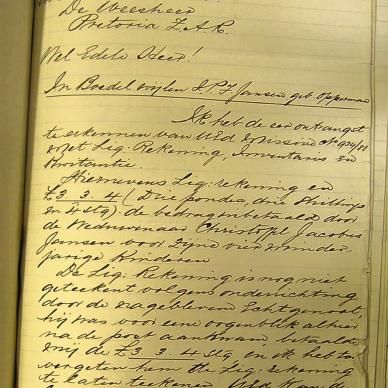 De Weesheer
Pretoria Z.A.R.
Wel Edele Heer!
In Boedel wijlen S.P.J. Jansen geb. Opperman
Ik heb de eer ontvangst
te erkennen van UEd Missive No 934/88
met Liq: Rekening, Inventaris en
Kwitantie.
Hiernevens Liq: rekening en
£3. 3. 4 (Drie pondes, drie Shillings
en 4 stg) de bedragen betaald door
de Weduwenaar Christoffel Jacobus
Jansen voor zijne vier minder-
jarige Kinderen
De Liq: Rekening is nog niet
geteekent volgens onderrichting
door de nagebleven Echtgenoot,
hij was voor een oogenblik alhier
na de post aankwam betaalde
mij de £3 3. 4 stg en ik heb
vergeten hem de Liq: rekening
te laten teekenen